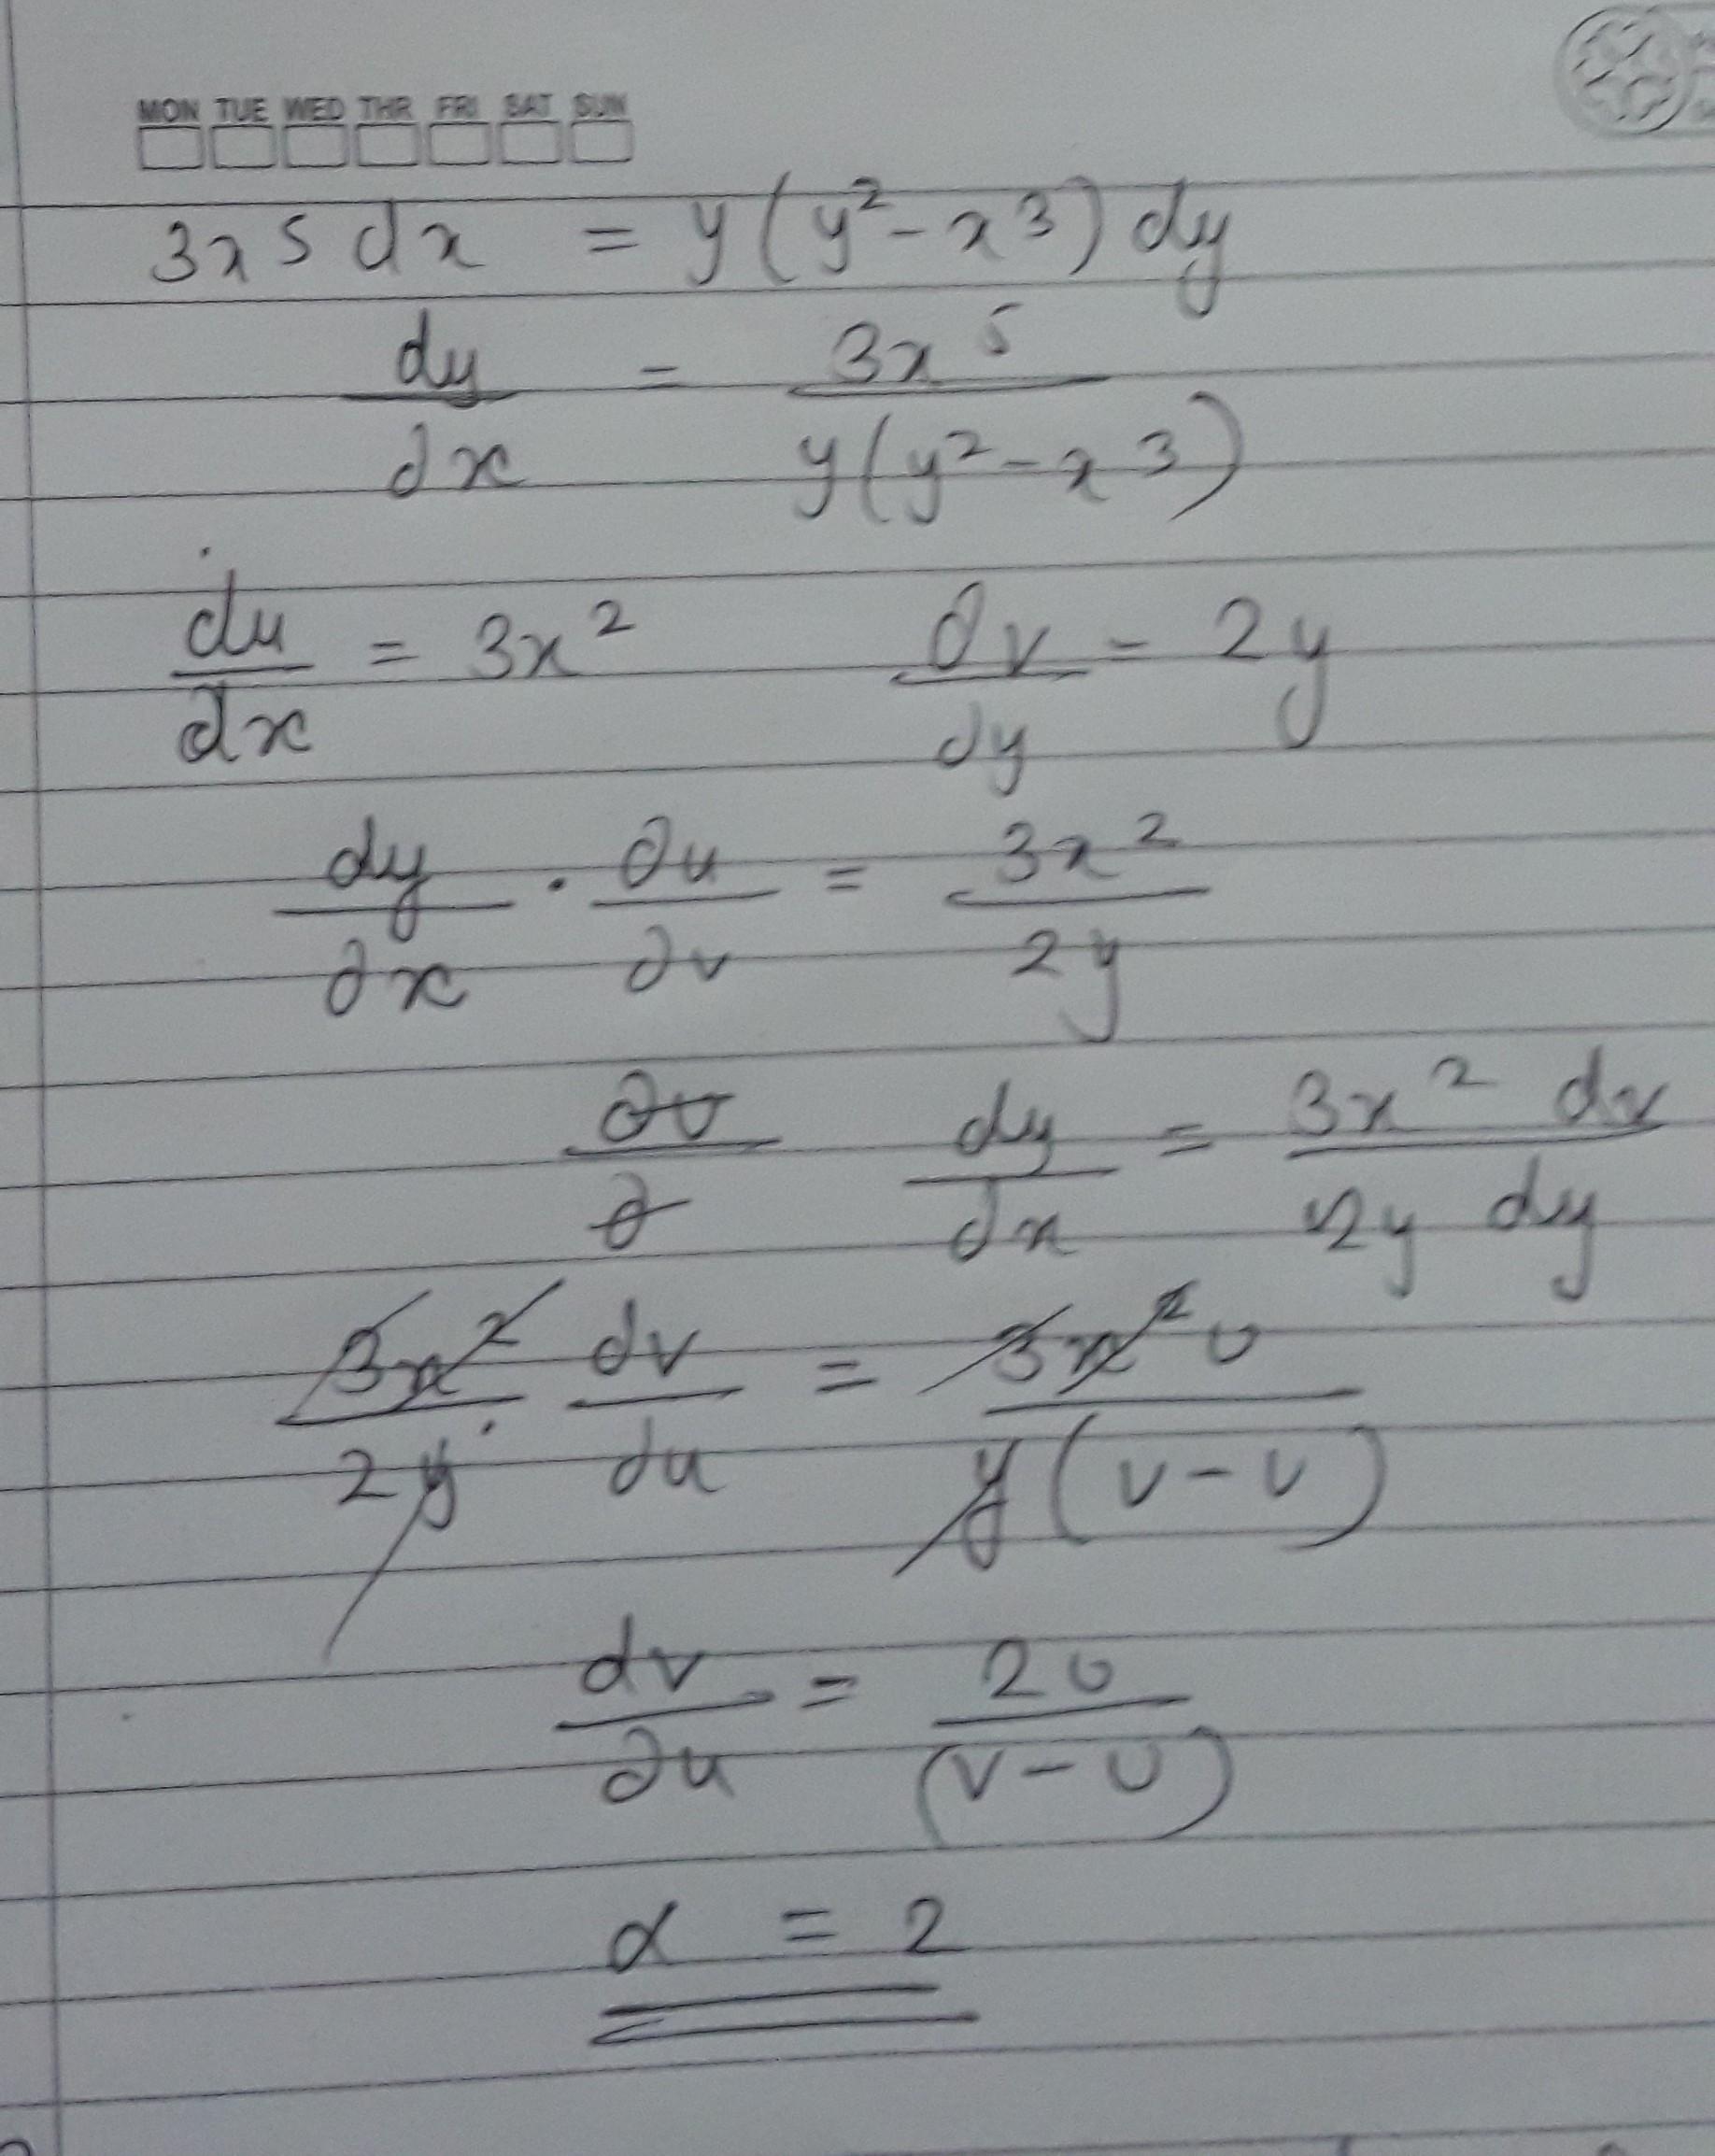 MON TUE WED THR FRI SAT SUN
3x5 dx = y(y²-x3) dy
dy/dx = 3x⁵/y(y²-x3)
du/dx = 3x² dv/dy = 2y
dy/dx · du/dv = 3x²/2y
dy/dx = 3x² dv/2y dy
3x²/2y · dv/du = 3x²u/y(v-u)
dv/du = 2u/(v-u)
α = 2